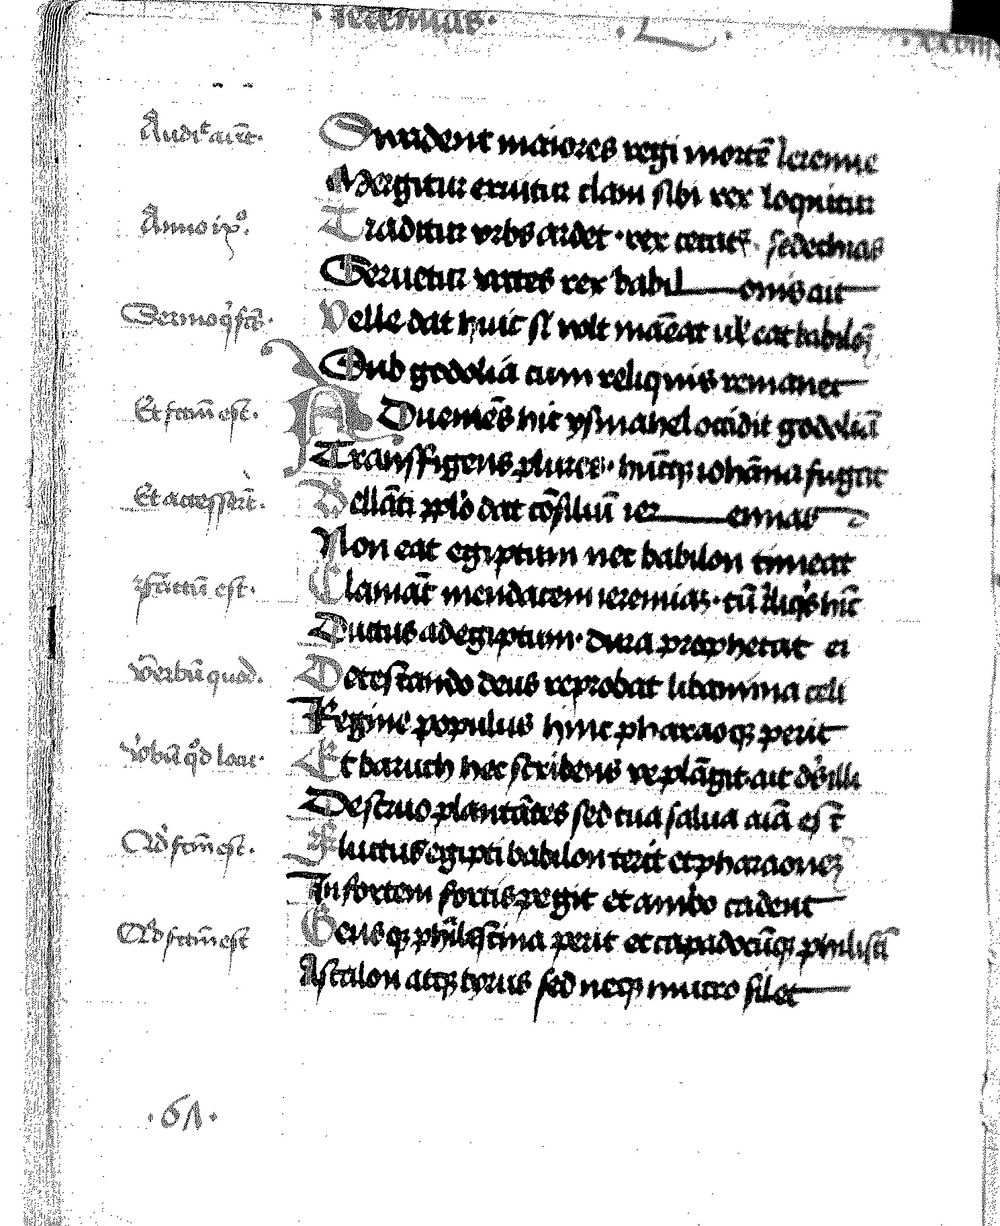 Jeremias
Audi&ctilde; aut̄
Suadent maiores regi mortē Ieremie
Mergitur eruitur clam sibi rex loquitur
Anno ix°
Traditur vrbs ardet rex cecat᷑ sedechias
Seruetur vates rex babil onis ait
Sermo q̇ fc̄s
Velle dat huic si volt māeat ul' eat babiloꝫ
Sub godolia cum reliquis remanet
Et fctm̄ est
ADueniēs hic ysmahel occidit godoliā
Transffigens plures hūcqꝫ iohāna fugat
Et accesserūt
Bellāti pplo dat cōsiliū ier emias
Non eat egiptum nec babilon timeat
Clamāt mendacem ieremiaꝫ cū hīc
fctū est
Ductus ad egiptum dura prophetat ei
verbū quod
Detestando deus reprobat libamina celi
Regine populus hinc pharaoqꝫ perit
v̇bū qd̊ locu
Et baruch hec scribens replāgit ait illi
Destruo plantātes sed tua salua aīa est
Qd̓ fctm̄ est
Fluctus egipti babilon terit et pharaoneꝫ
In fortem fortis regit et ambo cadent
Qd̓ fctm̄ est
Gensqꝫ philistina perit et capadocūqꝫ philistī
Ascalon atqꝫ tyrus sed neqꝫ mucro silet
61